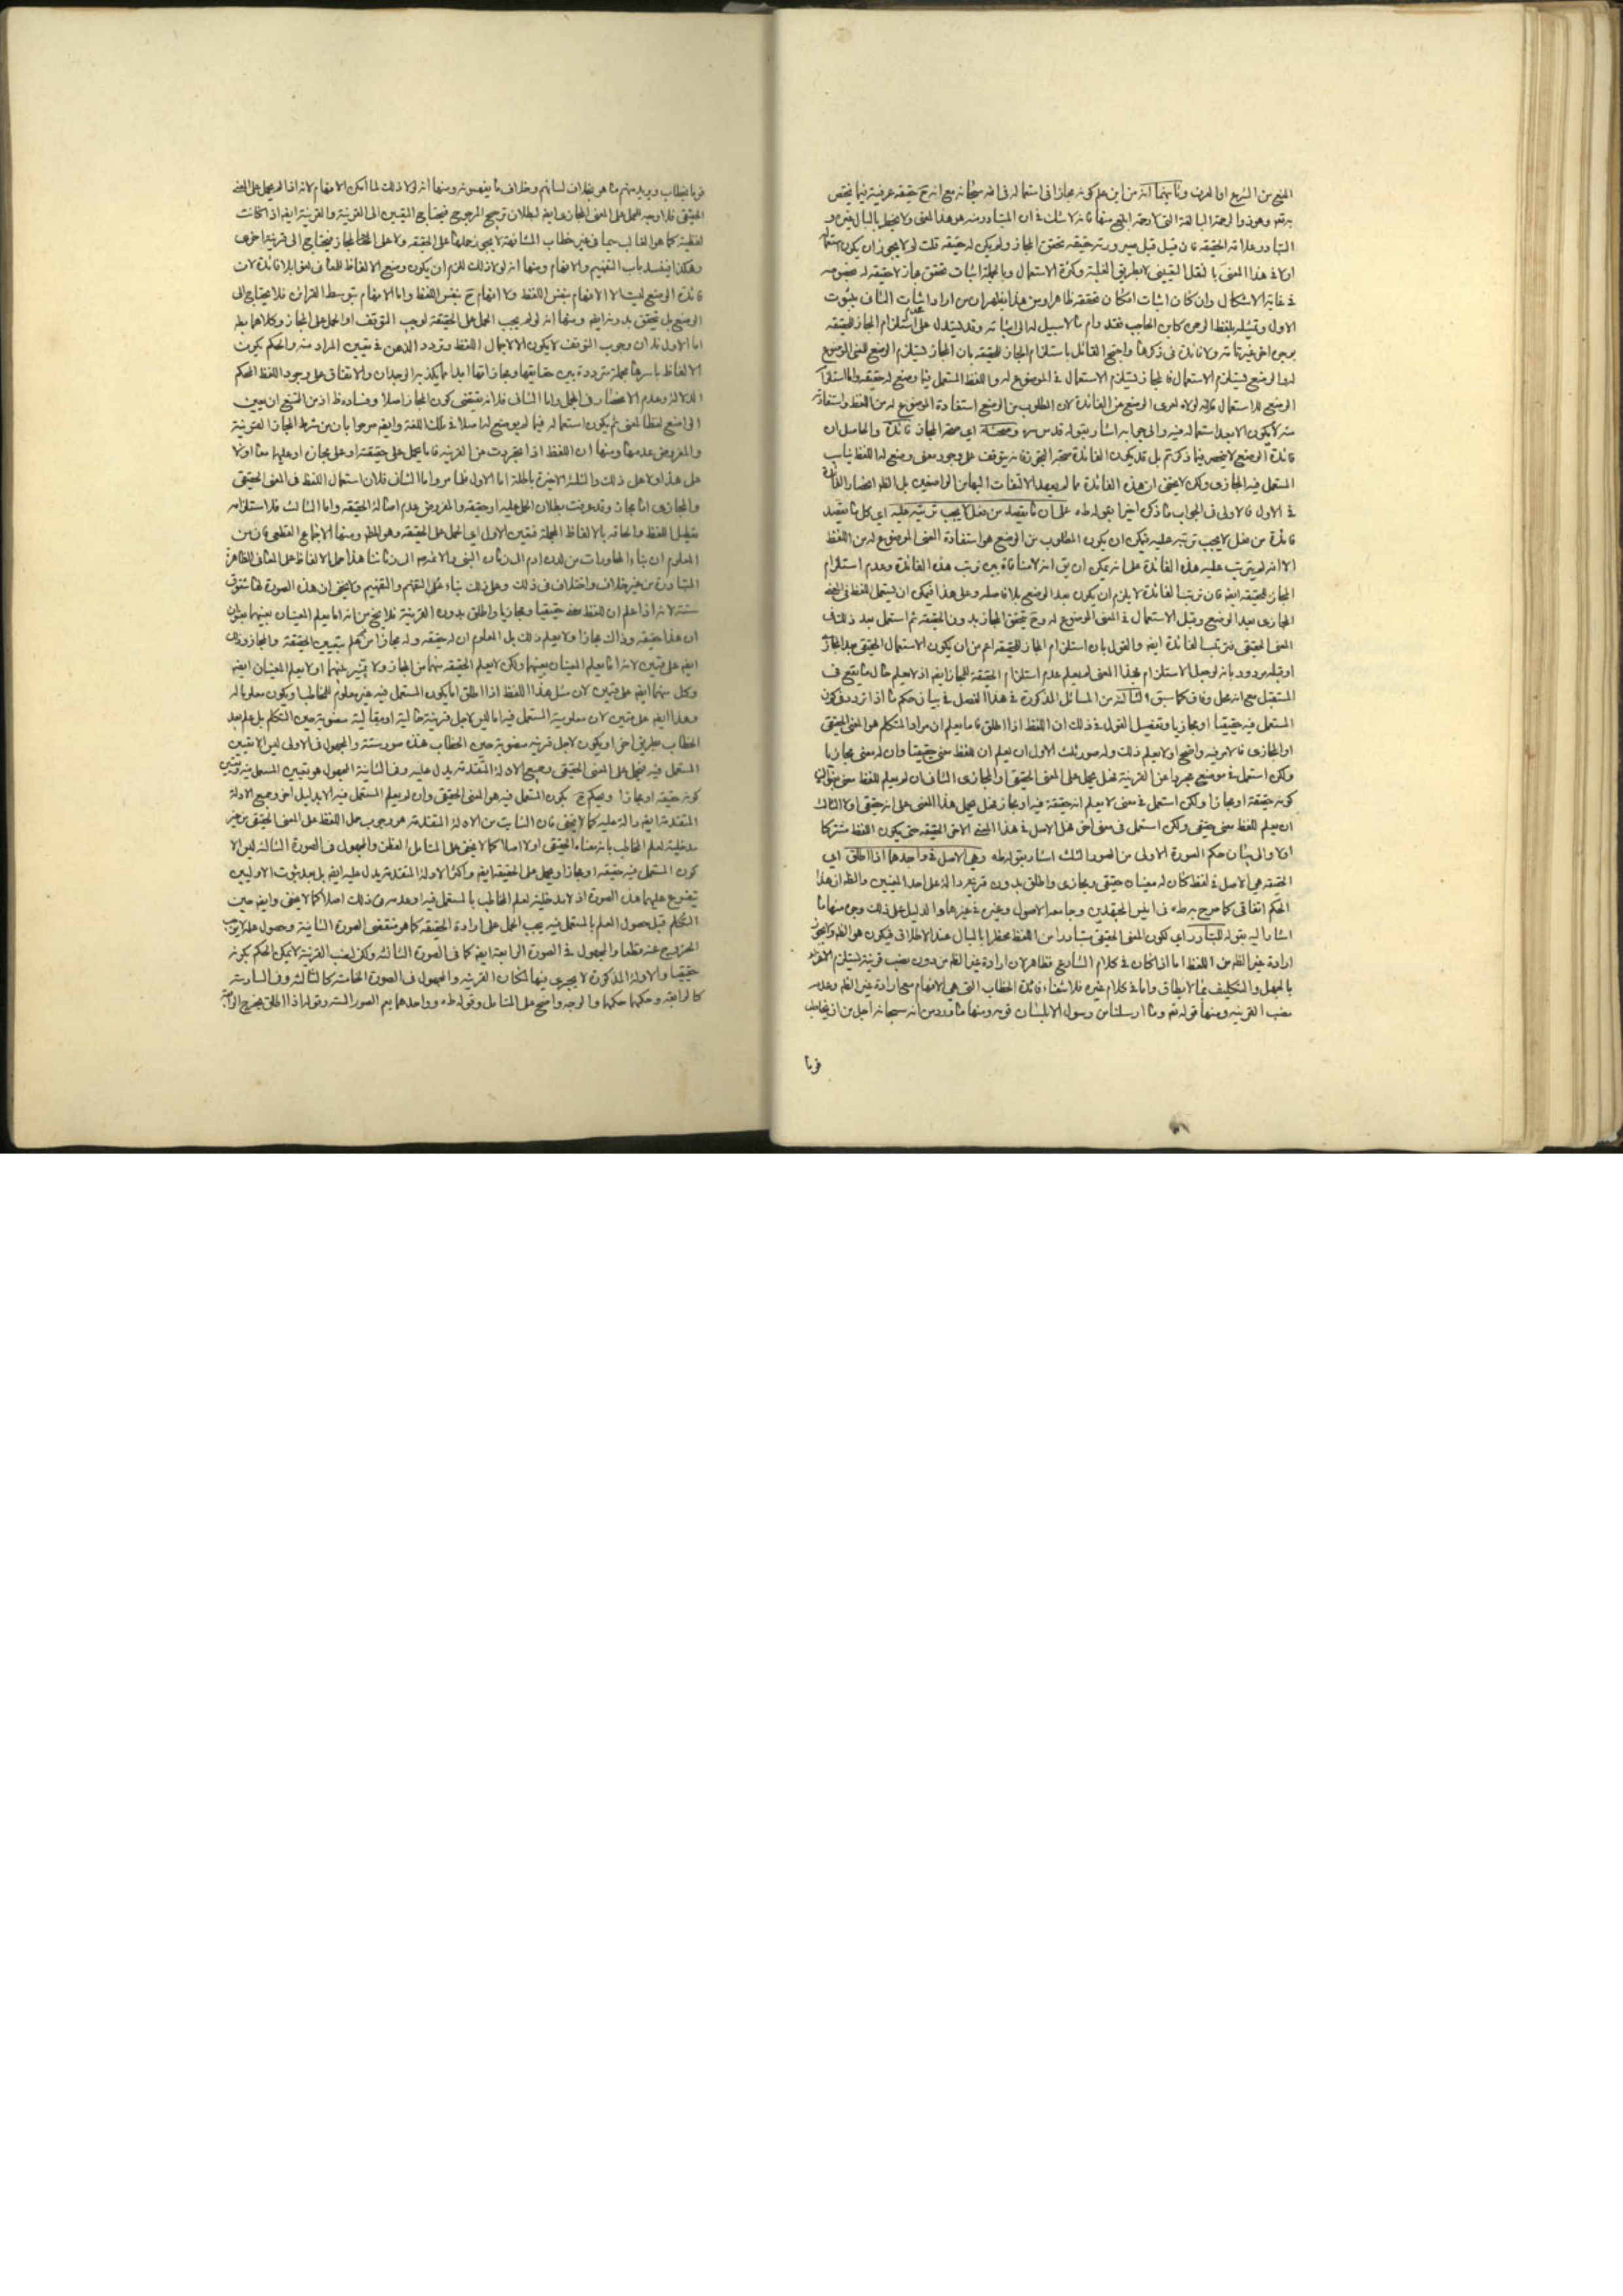 المنع من الشرع او العرف وثانيهما انه من اين علم كونه مجازا في استعماله في الله سبحانه مع انه ح حقيقة عرفية فيما يختص
به تعم وهو ذو الرحمة البالغة التى لا رحمة ابلغ منها فانه لا شك في ان المتبادر منه هو هذا المعنى ولا يخطر بالبال غيره و
التبادر علامة الحقيقة فان قيل قبل صيرورته حقيقة تحقق المجاز ولم يكن له حقيقة قلت لم لا يجوز ان يكون استعماله
اولا في هذا المعنى بالنقل التعييني لا بطريق الغلبة وكثرة الاستعمال وبالجملة اثبات تحقق مجاز لا حقيقة له بخصوصه
في غاية الاشكال وان كان اثبات امكان تحققه ظاهرا ومن هذا يظهر ان من اراد اثبات الثاني بثبوت
الاول وتمثيله بلفظ الرحمن كابن الحاجب فقد رام ما لا سبيل له الى اثباته وقد يستدل على عدم استلزام المجاز للحقيقة
بوجوه اخر غير تامة ولا فائدة في ذكرها واحتج القائل باستلزام المجاز للحقيقة بان المجاز يستلزم الوضع للمعنى الموضوع
له والوضع يستلزم الاستعمال فالمجاز يستلزم الاستعمال في الموضوع له واللفظ المستعمل فيما وضع له حقيقة واما استلزام
الوضع للاستعمال فلانه لولاه لعرى الوضع عن الفائدة لان المطلوب من الوضع استفادة الموضوع له من اللفظ واستفادته
منه لا يكون الا بعد استعماله فيه والى جوابه اشار بقوله قدس سره وصحة اي صحة المجاز فائدة والحاصل ان
فائدة الوضع لا ينحصر فيما ذكرتم بل قد يكون الفائدة صحة التجوز فانه يتوقف على وجود معنى وضع له اللفظ يناسب
المستعمل فيه المجازي ولكن لا يخفى ان هذه الفائدة مما لم يعهد الالتفات اليها من الواضعين بل الظم انحصار الفائدة
في الاول فالاولى في الجواب ما ذكره اخيرا بقوله طه على ان ما يقصد من فعل لا يجب ترتبه عليه اي كل ما يقصد
فائدة من فعل لا يجب ترتبه عليه فيمكن ان يكون المطلوب من الوضع هو استفادة المعنى الموضوع له من اللفظ
الا انه لم يترتب عليه هذه الفائدة على انه يمكن ان يق انه لا منافاة بين ترتب هذه الفائدة وعدم استلزام
المجاز للحقيقة ايضا فان ترتب الفائدة لا يلزم ان يكون بعد الوضع بلا فاصلة وعلى هذا فيمكن ان يستعمل اللفظ في المعنى
المجازي بعد الوضع وقبل الاستعمال في المعنى الموضوع له وح يتحقق المجاز بدون الحقيقة ثم استعمل بعد ذلك في
المعنى الحقيقي فترتب الفائدة ايضا والقول بان استلزام المجاز للحقيقة اعم من ان يكون الاستعمال الحقيقي بعد المجاز
او قبله مردود بانه لو جعل الاستلزام بهذا المعنى لم يعلم عدم استلزام الحقيقة للمجاز ايضا اذ لا يعلم حال ما يقع في
المستقبل مع انه محل وفاق كما سبق الثالثة من المسائل المذكورة في هذا الفصل في بيان حكم ما اذا تردد في كون
المستعمل فيه حقيقيا او مجازيا وتفصيل القول في ذلك ان اللفظ اذا اطلق فاما يعلم ان مراد المتكلم هو المعنى الحقيقي
او المجازي فالامر فيه واضح او لا يعلم ذلك وله صور ثلث الاول ان يعلم ان للفظ معنى حقيقيا وان له معنى مجازيا
ولكن استعمل في موضع مجردا عن القرينة فهل يحمل على المعنى الحقيقي او المجازي الثاني ان لم يعلم للفظ معنى
كونه حقيقة او مجازا ولكن استعمل في معنى لا يعلم انه حقيقة فيه او مجاز فهل يحمل هذا المعنى على انه حقيقي او لا الثالث
ان يعلم للفظ معنى حقيقي ولكن استعمل في معنى اخر فهل الاصل في هذا المعنى الاخر الحقيقة حتى يكون اللفظ مشتركا
او لا والى بيان حكم الصورة الاولى من الصور الثلث اشار بقوله طه وهي الاصل في واحدهما اذا اطلق اي
الحقيقة هي الاصل في لفظ كان له معنيان حقيقي ومجازي واطلق بدون قرينة دالة على احد المعنيين والظ ان هذا
الحكم اتفاقي كما صرح به طه في انيس المجتهدين وجامعة الاصول وغيره في غيرهما والدليل على ذلك وجوه منها ما
اشار اليه بقوله للتبادر اي لكون المعنى الحقيقي متبادرا من اللفظ مخطرا بالبال عند الاطلاق فيكون هو الظم ولا يجوز
ارادة غير الظم من اللفظ اما اذا كان في كلام الشارع فظاهر لان ارادة غير الظم من دون نصب قرينة يستلزم الاغراء
بالجهل والتكليف بما لا يطاق واما في كلام غيره فلانتفاء فائدة الخطاب التي هي الافهام مع ارادة غير الظم وعدم
نصب القرينة ومنها قوله تعم وما ارسلنا من رسول الا بلسان قومه ومنها ما ورد من انه سبحانه اجل من ان يخاطب
قوما
قوما بخطاب ويريد منهم ما هو بخلاف لسانهم وخلاف ما يفهمونه ومنها انه لولا ذلك لما امكن الافهام لانه اذا لم يحمل على المعنى
الحقيقي فلا وجه للحمل على المعنى المجازي ايضا لبطلان ترجيح المرجوح فيحتاج التعيين الى القرينة والقرينة ايضا اذا كانت
لفظية كما هو الغالب سيما في غير خطاب المشافهة لا يجوز حملها على الحقيقة ولا على المجاز فيحتاج الى قرينة اخرى
وهكذا فينسد باب التفهيم والافهام ومنها انه لولا ذلك للزم ان يكون وضع الالفاظ للمعاني لغوا بلا فائدة لان
فائدة الوضع ليست الا الافهام بنفس اللفظ ولا افهام ح بنفس اللفظ واما الافهام بتوسط القرائن فلا يحتاج الى
الوضع بل يتحقق بدونه ايضا ومنها انه لو لم يجب الحمل على الحقيقة لوجب التوقف او الحمل على المجاز وكلاهما بط
اما الاول فلان وجوب التوقف لا يكون الا لاجمال اللفظ وتردد الذهن في تعيين المراد منه والحكم بكون
الالفاظ باسرها مجملة مترددة بين حقايقها ومجازاتها ابدا مما يكذبه الوجدان والاتفاق على وجود اللفظ المحكم
الدلالة وعدم الانحصار في المجمل واما الثاني فلانه يقتضي كون المجاز اصلا وفساده ظ اذ من القبيح ان يعين
الواضع لفظا لمعنى ثم يكون استعماله فيما لم يوضع له اصلا في تلك اللغة وايضا صرحوا بان من شرط المجاز القرينة
والمفروض عدمها ومنها ان اللفظ اذا تجردت عن القرينة فاما يحمل على حقيقته او على مجازه او عليهما معا او لا
على هذا ولا على ذلك والثلثة الاخيرة باطلة اما الاول فظ مر واما الثاني فلان استعمال اللفظ في المعنى الحقيقي
والمجازي اما مجاز وقد عرفت بطلان الحمل عليه او حقيقة والمفروض عدم اصالة الحقيقة واما الثالث فلاستلزامه
تعطيل اللفظ والحاقه بالالفاظ المهملة فتعين الاول اي الحمل على الحقيقة وهو المط ومنها الاجماع القطعي فان من
المعلوم ان بناء المحاورات من لدن ادم الى زمان النبي والائمة الى زماننا هذا حمل الالفاظ على المعاني الظاهرة
المتبادرة من غير خلاف واختلاف في ذلك وعلى ذلك بناء على الفهم والتفهيم ولا يخفى ان هذه الصورة لها شقوق
ستة لانه اذا علم ان للفظ معنى حقيقيا ومجازيا واطلق بدون القرينة فلا يخ من انه اما يعلم المعنيان بعينهما
ان هذا حقيقة وذاك مجاز او لا يعلم ذلك بل المعلوم ان له حقيقة وله مجازا من غير علم بتعيين الحقيقة والمجاز وذلك
ايضا على قسمين لانه اما يعلم المعنيان بعينهما ولكن لا يعلم الحقيقة منهما من المجاز ولا تميز بينهما او لا يعلم المعنيان ايضا
وكل منهما ايضا على قسمين لان مثل هذا اللفظ اذا اطلق اما يكون المستعمل فيه غير معلوم للمخاطب او يكون معلوما له
وهذا ايضا على قسمين لان معلومية المستعمل فيه اما ليس لاجل قرينة حالية او مقالية منصوبة حين التكلم بل علم بعد
الخطاب بطريق اخر او يكون لاجل قرينة منصوبة حين الخطاب فهذه صور ستة والمجهول في الاولى ليس الا تعيين
المستعمل فيه فيحمل على المعنى الحقيقي وجميع الادلة المتقدمة يدل عليه وفي الثانية المجهول هو تعيين المستعمل فيه
كونه حقيقة او مجازا ويحكم ح بكون المستعمل فيه هو المعنى الحقيقي وان لم يعلم المستعمل فيه الا بدليل اخر وجميع الادلة
المتقدمة ايضا دالة عليه كما لا يخفى فان الثابت من الادلة المتقدمة هو وجوب حمل اللفظ على المعنى الحقيقي من غير
مدخلية لعلم المخاطب بانه معناه الحقيقي او لا اصلا كما لا يخفى على المتامل الفطن والمجهول في الصورة الثالثة ليس الا
كون المستعمل فيه حقيقة او مجازا ويحمل على الحقيقة ايضا واكثر الادلة المتقدمة يدل عليه ايضا بل بعد ثبوت الاوليين
يتفرع عليهما هذه الصورة اذ لا مدخلية لعلم المخاطب بالمستعمل فيه او عدمه في ذلك اصلا كما لا يخفى وايضا حين
التكلم قبل حصول العلم بالمستعمل فيه يجب الحمل على ارادة الحقيقة كما هو مقتضى الصورة الثانية وحصول العلم لا يوجب
الخروج عنه قطعا والمجهول في الصورة الرابعة ايضا كما في الصورة الثالثة ولكن لنصب القرينة لا يمكن الحكم بكونه
حقيقيا والادلة المذكورة لا يجري فيها لمكان القرينة والمجهول في الصورة الخامسة كالثالثة وفي السادسة
كالرابعة وحكمهما حكمهما والوجه واضح على المتامل وقوله طه وواحدهما يعم الصور الستة وقوله اذا اطلق يخرج